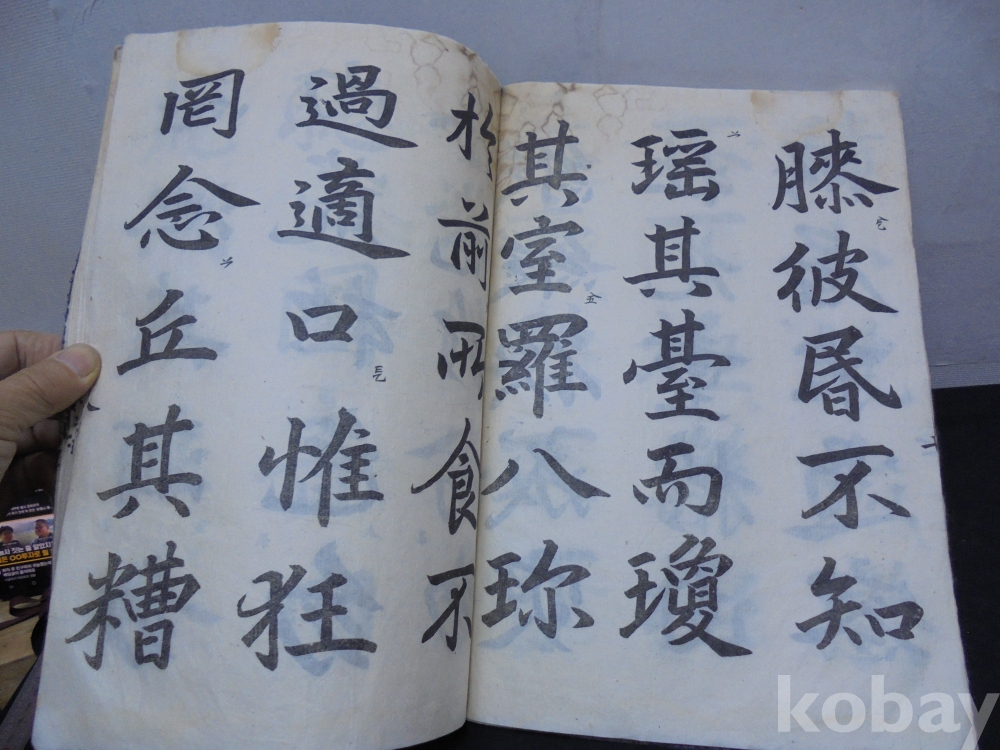 膝彼昬不知
瑤其臺而瓊
其室羅八珍
於前所食不
過適口惟狂
罔念丘其糟
kobay